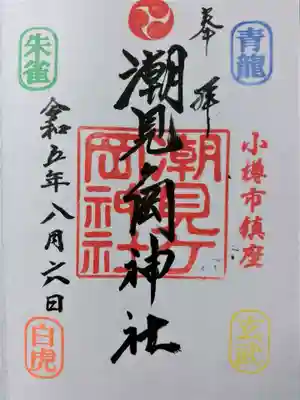 奉拝
青龍
小樽市鎮座
玄武
潮見ヶ岡神社
潮見岡神社
朱雀
令和五年八月六日
白虎